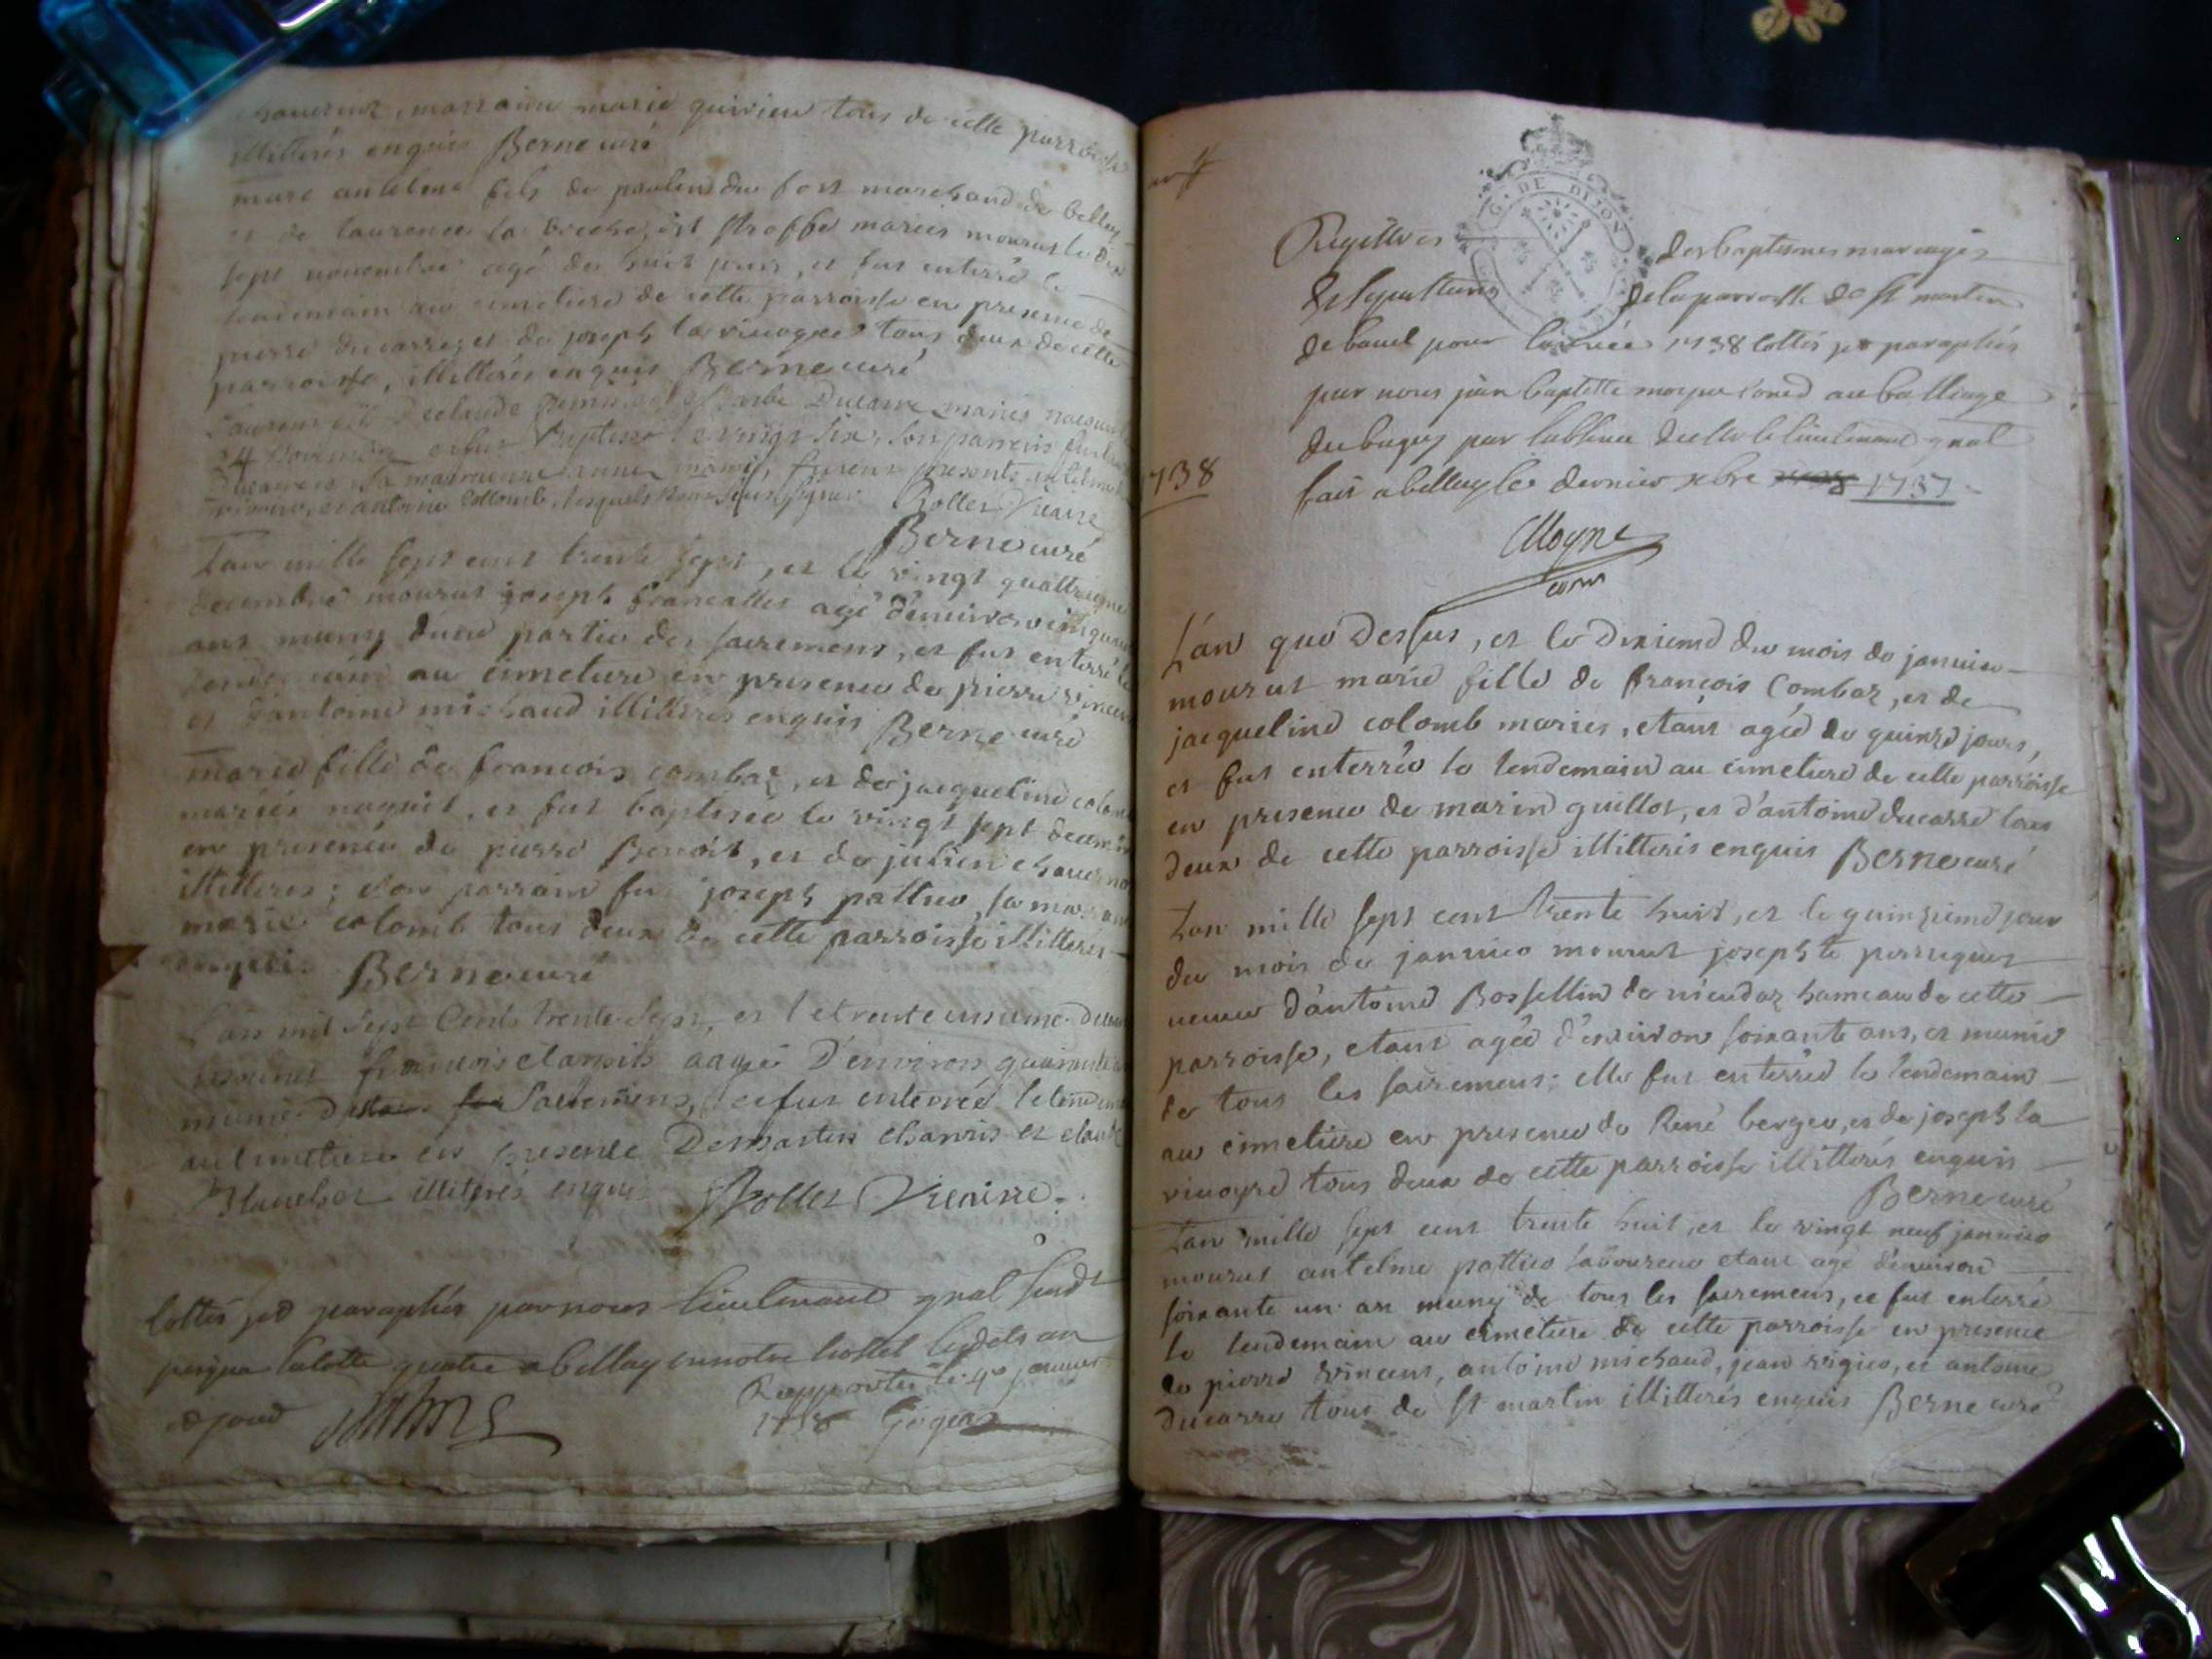 marraine marie quirieu tous de cette parroisse
illitterés enquis Berne curé
marc antelme fils de paulin du fort marchand de belley
et de laurence la mariés mourut le dix
sept novembre agé de huit jours, et fut enterré le
lendemain au cimetiere de cette parroisse en presence de
pierre ducarre et de joseph la vivogne tous deux de cette
parroisse, illitterés enquis Berne curé
Declaude Barbe Ducarre mariés
24 novembre baptisé le vingt six, son parrein fut
Ducarre sa marreine anne furent presents
et antoine Collomb, lesquels Rollet Vicaire
Berne curé
L'an mille sept cent trente sept, et le vingt quattrieme
decembre mourut joseph francallet agé d'environ cinquante
ans muny d'une partie des sacremens, et fut enterré le
lendemain au cimetiere en presence de pierre vincent
et d'antoine michaud illitterés enquis Berne curé
marie fille de francois combaz, et de jacqueline colomb
mariés naquit, et fut baptisée le vingt sept decembre
en presence de pierre Benoit, et de julien
illitterés; son parrain fut joseph pattieu, sa marraine
marie colomb tous deux de cette parroisse illitterés
enquis Berne curé
L'an mil sept Cents trente sept, et le trente unieme
mourut francois aagé D'environ quarante
muni Sacremens, et fut enterré le lendemain
au Cimetiere en presence De martin et claude
Blanchet illiterés enquis Rollet Vicaire
Cottés et paraphés par nous lieutenant gnal
jusqua la cotte quatre a belley en notre hostel
Rapporté le 4e janvier
et jour 1738
nf
Registres des baptesmes mariages
G. DE DIJON
& sepultures de la parroisse de st martin
de bavel pour l'année 1738 cottés et paraphés
par nous jean baptiste moyne coner au balliage
du bugey par l'absence de le lieutenant gnal
1738
fait a belley le dernier xbre 1738 1737
Moyne
coner
L'an que dessus, et le dixieme du mois de janvier
mourut marie fille de françois Combaz, et de
jacqueline colomb mariés, etant agée de quinze jours,
et fut enterrée le lendemain au cimetiere de cette parroisse
en presence de marin guillot, et d'antoine ducarre tous
deux de cette parroisse illitterés enquis Berne curé
L'an mille sept cent trente huit, et le quinzieme jour
du mois de janvier mourut josephte perruquet
veuve d'antoine Bossellin de hameau de cette
parroisse, etant agée d'environ soixante ans, et munie
de tous les sacremens; elle fut enterrée le lendemain
au cimetiere en presence de René berger, et de joseph la
vivogne tous deux de cette parroisse illitterés enquis
Berne curé
L'an mille sept cent trente huit, et le vingt neuf janvier
mourut antelme pattieu laboureur etant agé d'environ
soixante un an muny de tous les sacremens, et fut enterré
le lendemain au cimetiere de cette parroisse en presence
de pierre vincent, antoine michaud, jean vigier, et antoine
Ducarre tous de St martin illitterés enquis Berne curé